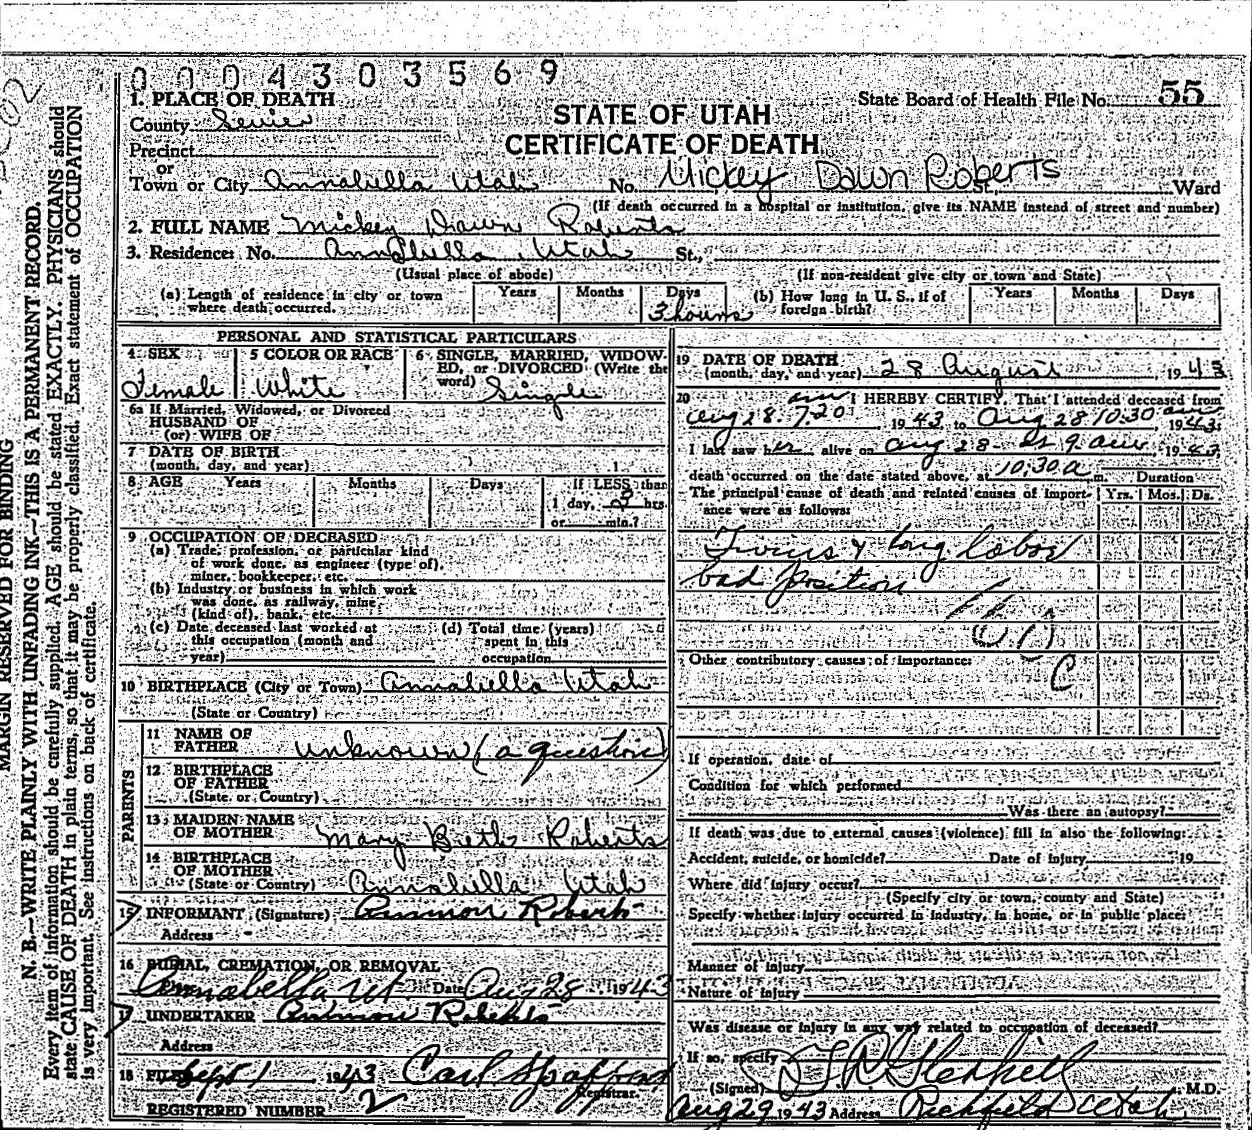 0 0 0 4 3 0 3 5 6 9
1. PLACE OF DEATH
County Sevier
Precinct
or
Town or City Annabella Utah No. Mickey Dawn Roberts St., Ward
STATE OF UTAH
CERTIFICATE OF DEATH
State Board of Health File No. 55
(If death occurred in a hospital or institution, give its NAME instead of street and number)
2. FULL NAME Mickey Dawn Roberts
3. Residence: No. Annabella Utah St.,
(Usual place of abode) (If non-resident give city or town and State)
(a) Length of residence in city or town where death occurred. Years Months Days 3 hours
(b) How long in U. S., if of foreign birth? Years Months Days
PERSONAL AND STATISTICAL PARTICULARS
4 SEX Female
5 COLOR OR RACE White
6 SINGLE, MARRIED, WIDOWED, or DIVORCED (Write the word) Single
6a If Married, Widowed, or Divorced
HUSBAND OF
(or) WIFE OF
7 DATE OF BIRTH
(month, day, and year)
8 AGE Years Months Days If LESS than
1 day, 3 hrs.
or min.?
9 OCCUPATION OF DECEASED
(a) Trade, profession, or particular kind
of work done, as engineer (type of),
miner, bookkeeper, etc.
(b) Industry or business in which work
was done, as railway, mine
(kind of), bank, etc.
(c) Date deceased last worked at
this occupation (month and
year)
(d) Total time (years)
spent in this
occupation
10 BIRTHPLACE (City or Town) Annabella Utah
(State or Country)
PARENTS
11 NAME OF
FATHER unknown (a question)
12 BIRTHPLACE
OF FATHER
(State or Country)
13 MAIDEN NAME
OF MOTHER Mary Beth Roberts
14 BIRTHPLACE
OF MOTHER
(State or Country) Annabella Utah
15 INFORMANT (Signature) Ammon Roberts
Address
16 BURIAL, CREMATION, OR REMOVAL
Annabella Ut. Date Aug 28 1943
17 UNDERTAKER Ammon Roberts
Address
18 FILED Sept 1 1943 Carl Spafford
Registrar.
REGISTERED NUMBER 2
19 DATE OF DEATH
(month, day, and year) 28 August, 1943
20 I HEREBY CERTIFY, That I attended deceased from
Aug 28. 7.20 am 1943, to Aug 28 10:30 am, 1943.
I last saw her alive on Aug 28 at 9 am 1943
death occurred on the date stated above, at 10:30 a m. Duration
The principal cause of death and related causes of importance were as follows: Yrs. Mos. Ds.
Twins & long labor
bad position
Other contributory causes of importance:
C
If operation, date of
Condition for which performed
Was there an autopsy?
If death was due to external causes (violence) fill in also the following:
Accident, suicide, or homicide? Date of injury 19
Where did injury occur?
(Specify city or town, county and State)
Specify whether injury occurred in industry, in home, or in public place:
Manner of injury
Nature of injury
Was disease or injury in any way related to occupation of deceased?
If so, specify
(Signed) M.D.
Aug 29 1943 Address Richfield Utah
MARGIN RESERVED FOR BINDING
N. B.—WRITE PLAINLY WITH UNFADING INK—THIS IS A PERMANENT RECORD.
Every item of information should be carefully supplied. AGE should be stated EXACTLY. PHYSICIANS should
state CAUSE OF DEATH in plain terms, so that it may be properly classified. Exact statement of OCCUPATION
is very important. See instructions on back of certificate.